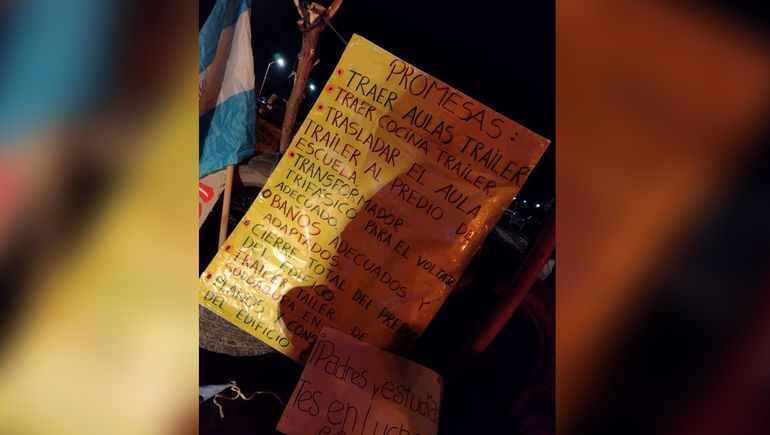 PROMESAS:
TRAER AULAS TRAILER
TRAER COCINA TRAILER
TRASLADAR EL AULA
TRAILER AL PREDIO DE
ESCUELA
TRANSFORMADOR
TRIFÁSICO PARA EL VOLTAJE
ADECUADO
BAÑOS ADECUADOS Y
ADAPTADOS
CIERRE TOTAL DEL PREDIO
DEL EDIFICIO
TRAILER TALLER DE
SOLDADURA EN
PLANOS Y CONS
DEL EDIFICIO
¡Padres y estudia
Tes en Lucha